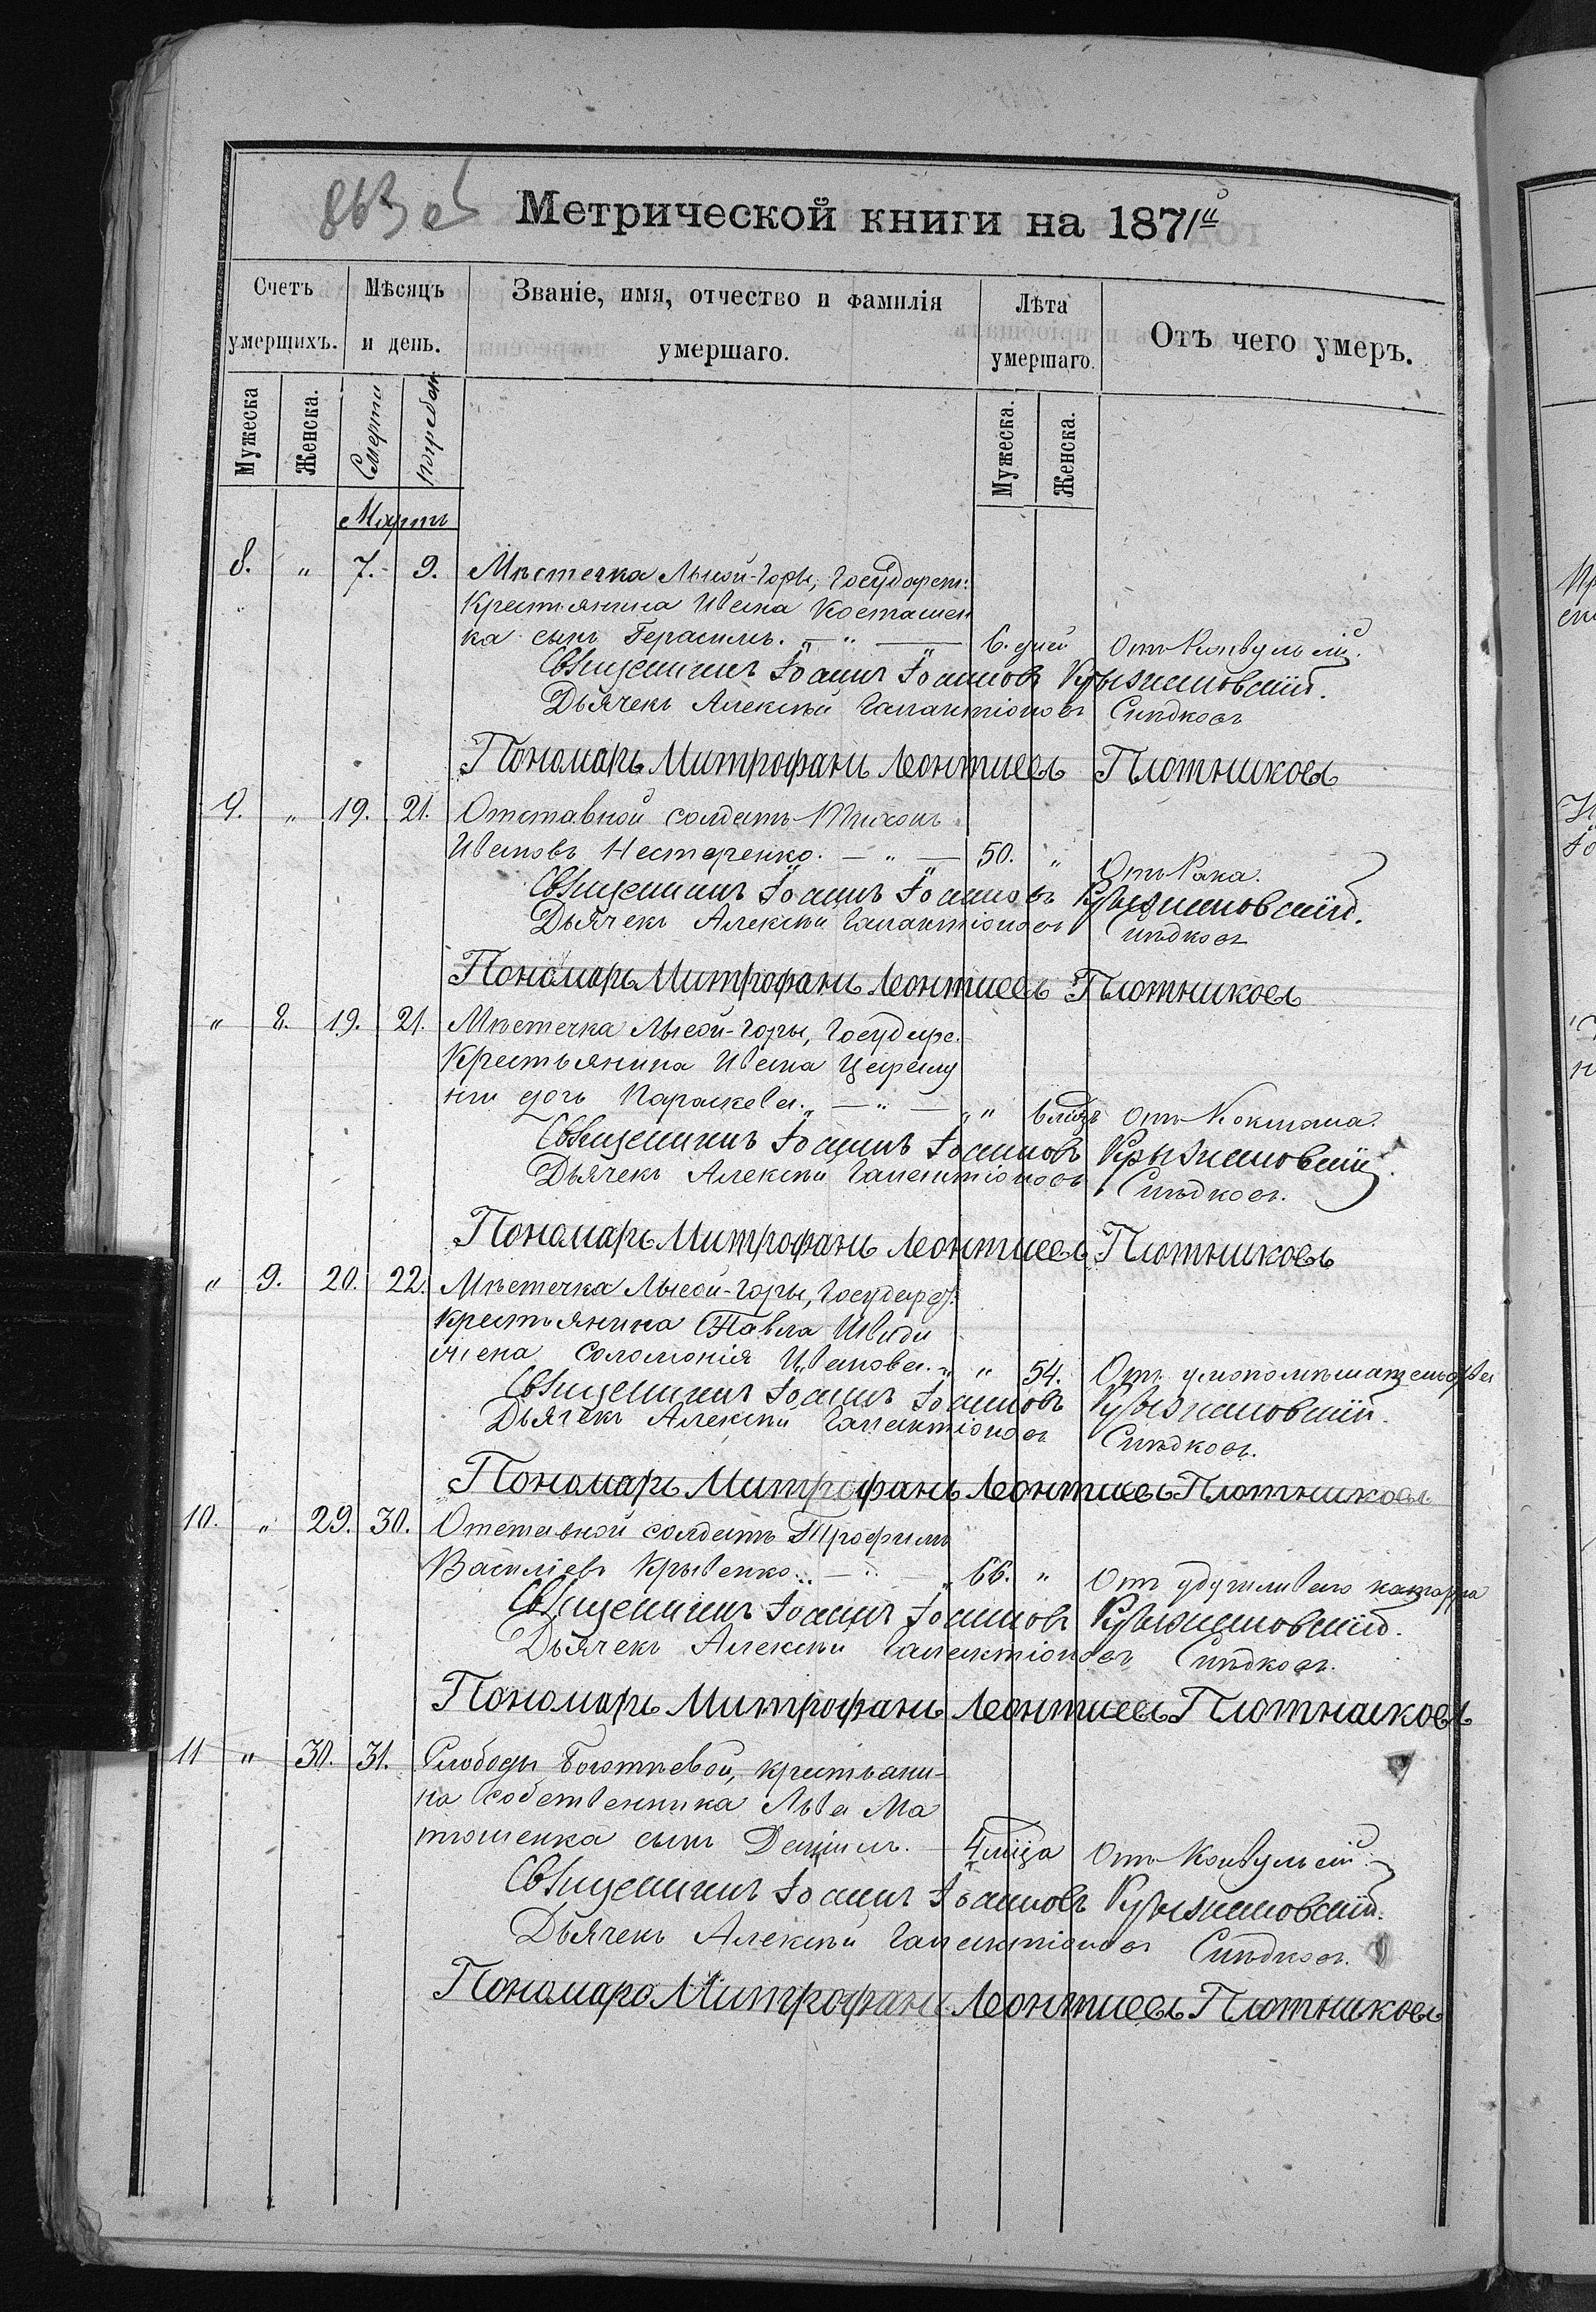 863 об
Метрической книги на 1871й
Счетъ умершихъ.
Мѣсяцъ и день.
Званіе, имя, отчество и фамилія умершаго.
Лѣта умершаго.
Отъ чего умеръ.
Мужеска
Женска.
Смерти
погребен
Мужеска.
Женска.
Мартъ
8. " 7. 9. Мѣстечка Лысой-Горы, Государст:
Крестьянина Ивана Косташен
ка сынъ Герасимъ. — " — 6. дней Отъ Конвульсій.
Священникъ Іоаннъ Іоанновъ Крыжановскій.
Дьячекъ Алексѣй Галактіоновъ Сидковъ
Пономарь Митрофанъ Леонтиевъ Плотниковъ
9. " 19. 21. Отставной солдатъ Тихонъ
Ивановъ Нестеренко. — " — 50. " Отъ Рака.
Священникъ Іоаннъ Іоанновъ Крыжановскій.
Дьячекъ Алексѣй Галактіоновъ Сидковъ
Пономарь Митрофанъ Леонтиевъ Плотниковъ
" 8. 19. 21. Мѣстечка Лысой-Горы, Государс.
Крестьянина Ивана
дочь Параскева. — " — " Отъ Коклюша.
Священникъ Іоаннъ Іоанновъ Крыжановскій.
Дьячекъ Алексѣй Галактіоновъ Сидковъ.
Пономарь Митрофанъ Леонтиевъ Плотниковъ
" 9. 20. 22. Мѣстечка Лысой-Горы, Государст:
Крестьянина Павла
жена Соломонія Иванова. " 54. Отъ умопомѣшательства
Священникъ Іоаннъ Іоанновъ Крыжановскій.
Дьячекъ Алексѣй Галактіоновъ Сидковъ.
Пономарь Митрофанъ Леонтиевъ Плотниковъ
10. " 29. 30. Отставной солдатъ Трофимъ
Василіевъ Крывенко. — " — 66. " Отъ удушливаго катарра
Священникъ Іоаннъ Іоанновъ Крыжановскій.
Дьячекъ Алексѣй Галактіоновъ Сидковъ.
Пономарь Митрофанъ Леонтиевъ Плотниковъ
11 " 30. 31. Слободы крестьяни-
на собственника Льва Ма
тюшенка сынъ Даніилъ. — 4 мѣца Отъ Конвульсій.
Священникъ Іоаннъ Іоанновъ Крыжановскій.
Дьячекъ Алексѣй Галактіоновъ Сидковъ.
Пономарь Митрофанъ Леонтиевъ Плотниковъ